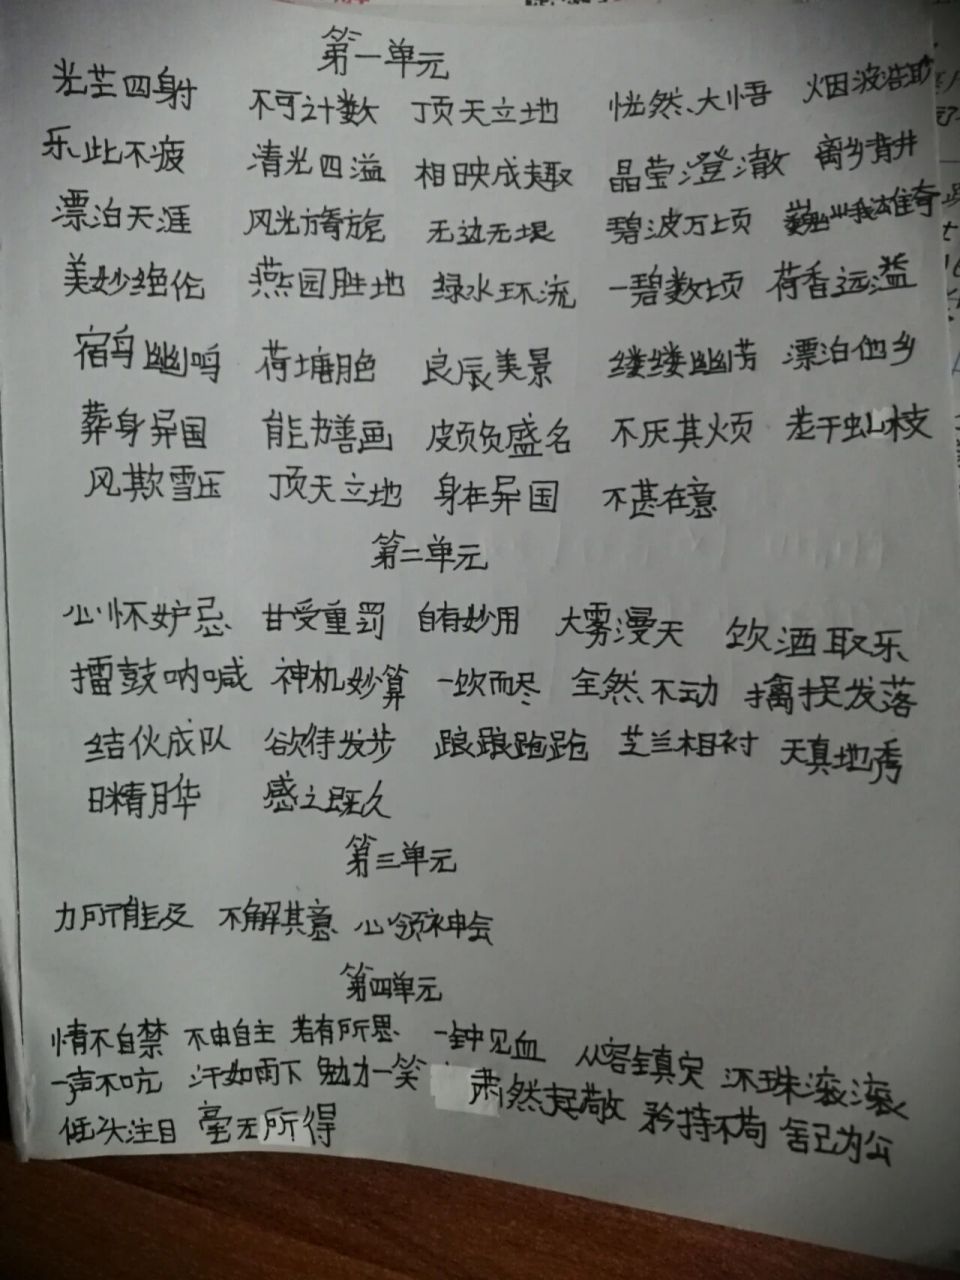 第一单元
光芒四射 不可计数 顶天立地 恍然大悟 烟波浩渺
乐此不疲 清光四溢 相映成趣 晶莹澄澈 离乡背井
漂泊天涯 风光旖旎 无边无垠 碧波万顷 巍峨雄奇
美妙绝伦 燕园胜地 绿水环流 一碧数顷 荷香远溢
宿鸟幽鸣 荷塘月色 良辰美景 缕缕幽芳 漂泊他乡
葬身异国 能书善画 颇负盛名 不厌其烦 老干虬枝
风欺雪压 顶天立地 身在异国 不甚在意
第二单元
心怀妒忌 甘受重罚 自有妙用 大雾漫天 饮酒取乐
擂鼓呐喊 神机妙算 一饮而尽 全然不动 擒捉发落
结伙成队 欲待发步 踉踉跄跄 芝兰相衬 天真地秀
日精月华 感之既久
第三单元
力所能及 不解其意 心领神会
第四单元
情不自禁 不由自主 若有所思 一针见血 从容镇定 汗珠滚滚
一声不吭 汗如雨下 勉力一笑 肃然起敬 矜持不苟 舍己为公
低头注目 毫无所得